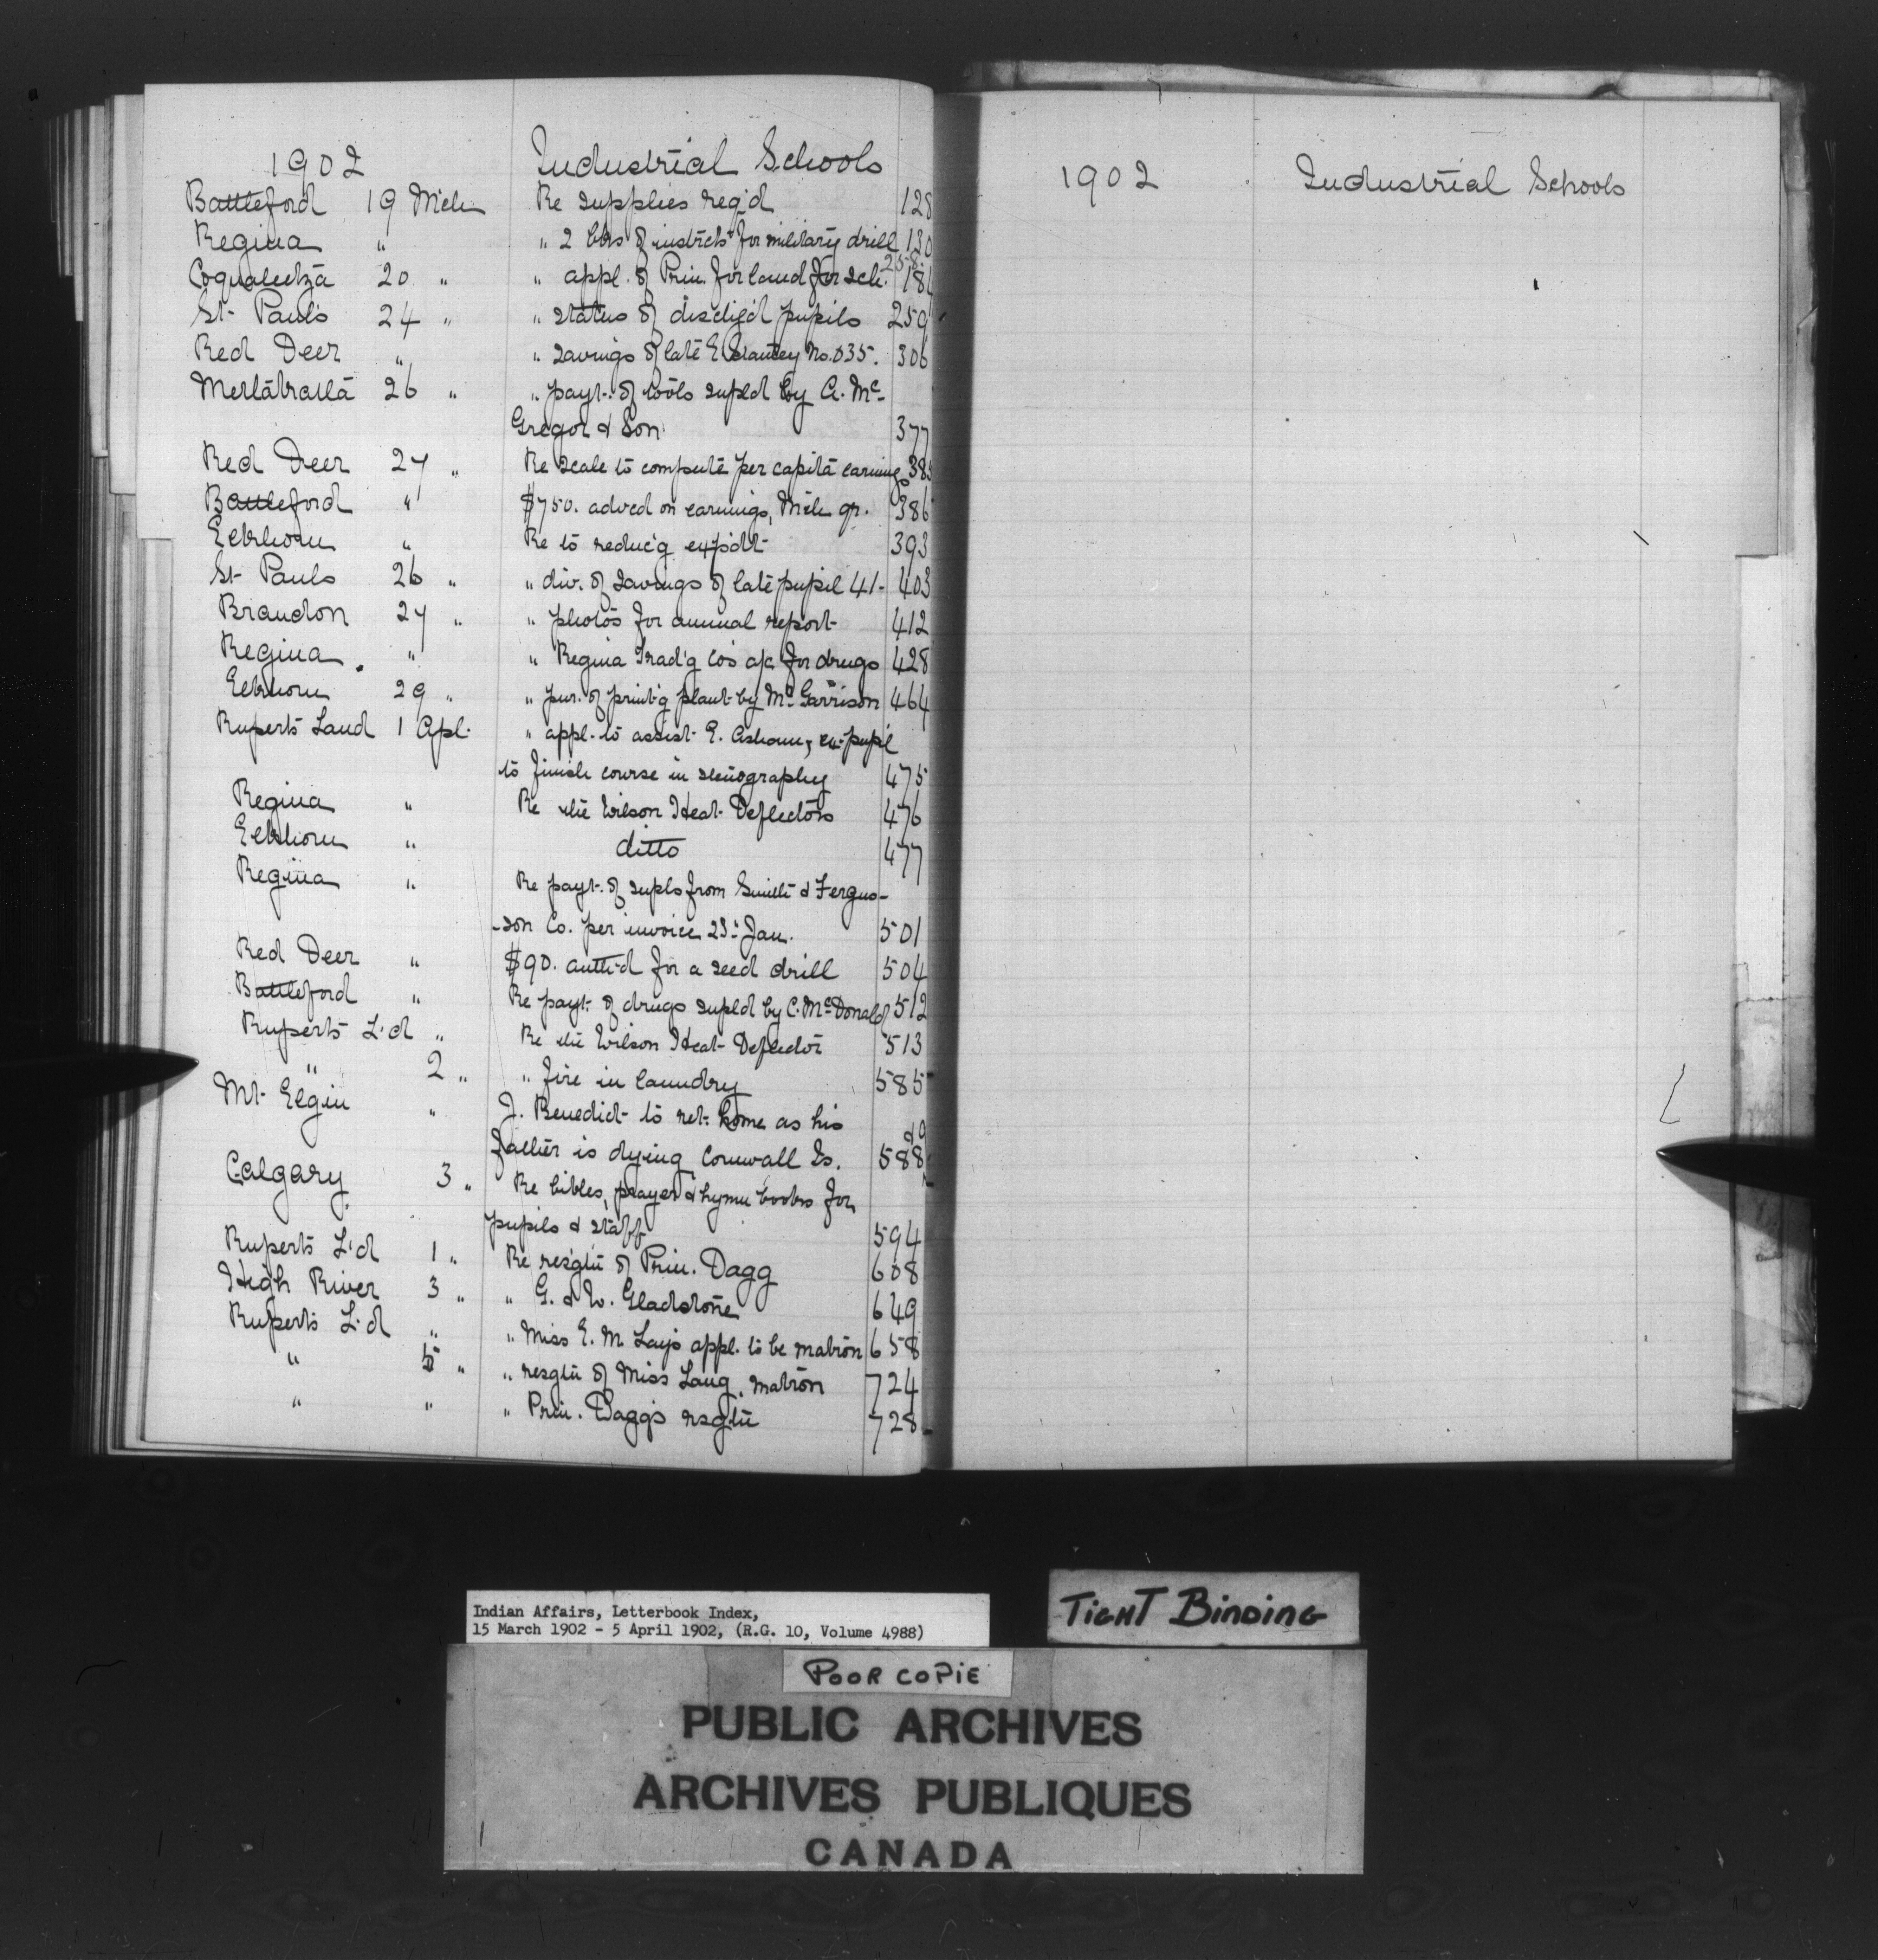 1902 Industrial Schools
Battleford 19 Mch Re supplies reg'd 128
Regina " " 2 bks of instrcts for military drill 130
258
Coqualeetza 20 " " appl. of Prin. for land for sch. 181
St Pauls 24 " " status of disch'g'd pupils 259
Red Deer " " savings of late E. Stanley No. 035. 306
Metlakatla 26 " " payt. of tools supld by A. Mc-
Gregor & Son 377
Red Deer 27 " Re scale to compute per capita earnings 385
Battleford " $750. advcd on earnings, Mch qr. 386
Elkhorn " Re to reduc'g exp'dt 393
St Pauls 26 " " div. of savings of late pupil 41- 403
Brandon 27 " " photos for annual report 412
Regina " " Regina Trad'g Co's a/c for drugs 428
Elkhorn 29 " " pur. of print'g plant by Mr Garrison 464
Ruperts Land 1 Apl. " appl. to assist E. ex-pupil
to finish course in stenography 475
Regina " Re the Wilson Heat Deflectors 476
Elkhorn " ditto 477
Regina " Re payt. of supls from Smith & Fergus-
-son Co. per invoice 23d Jan. 501
Red Deer " $90. auth'd for a seed drill 504
Battleford " Re payt. of drugs supld by C. McDonald 512
Ruperts L'd " Re the Wilson Heat Deflector 513
" 2 " " fire in laundry 585
Mt Elgin " J. Benedict to ret. home as his
father is dying Cornwall Is. 588 &9
Calgary 3 " Re bibles, prayer & hymn books for
pupils & staff 594
Ruperts L'd 1 " Re resgtn of Prin. Dagg 608
High River 3 " " G. & W. Gladstone 649
Ruperts L'd " " Miss E. M. appl. to be matron 658
" 5 " " resgtn of Miss Lang, matron 724
" " " Prin. Dagg's rsgtn 728
1902 Industrial Schools
Indian Affairs, Letterbook Index,
15 March 1902 - 5 April 1902, (R.G. 10, Volume 4988)
TIGHT BINDING
POOR COPIE
PUBLIC ARCHIVES
ARCHIVES PUBLIQUES
CANADA